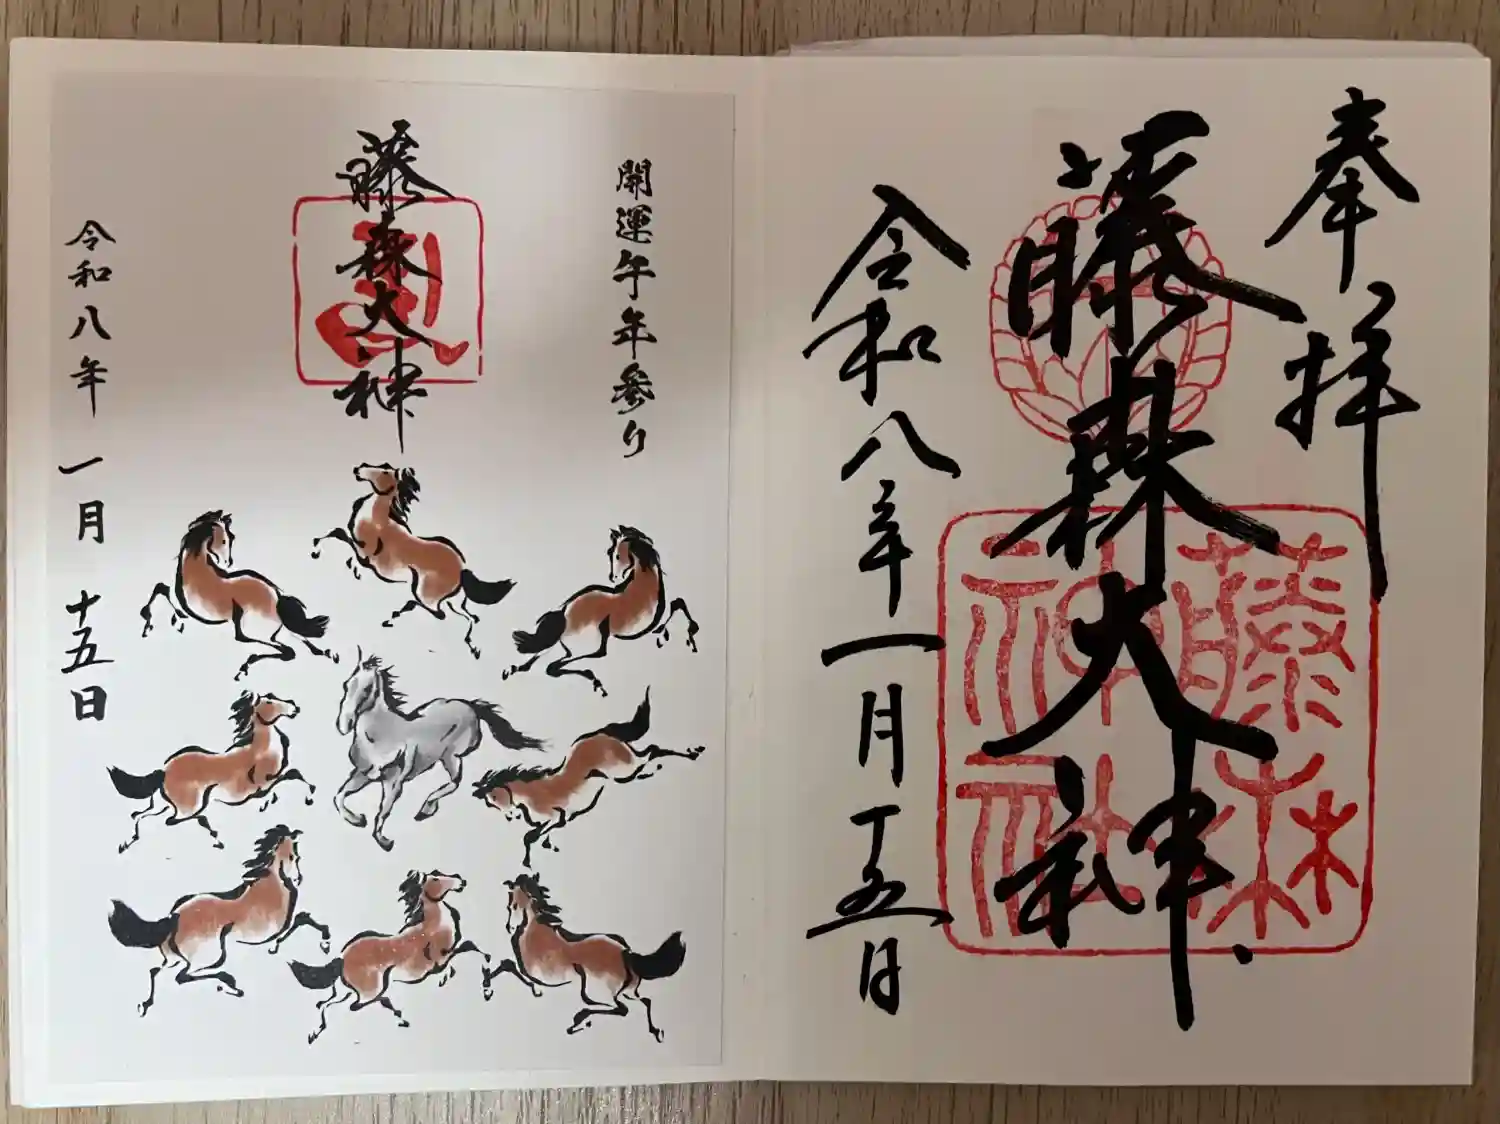 奉拝
藤森大神
令和八年一月十五日
藤森
神社
開運午年参り
藤森大神
令和八年 一月 十五日